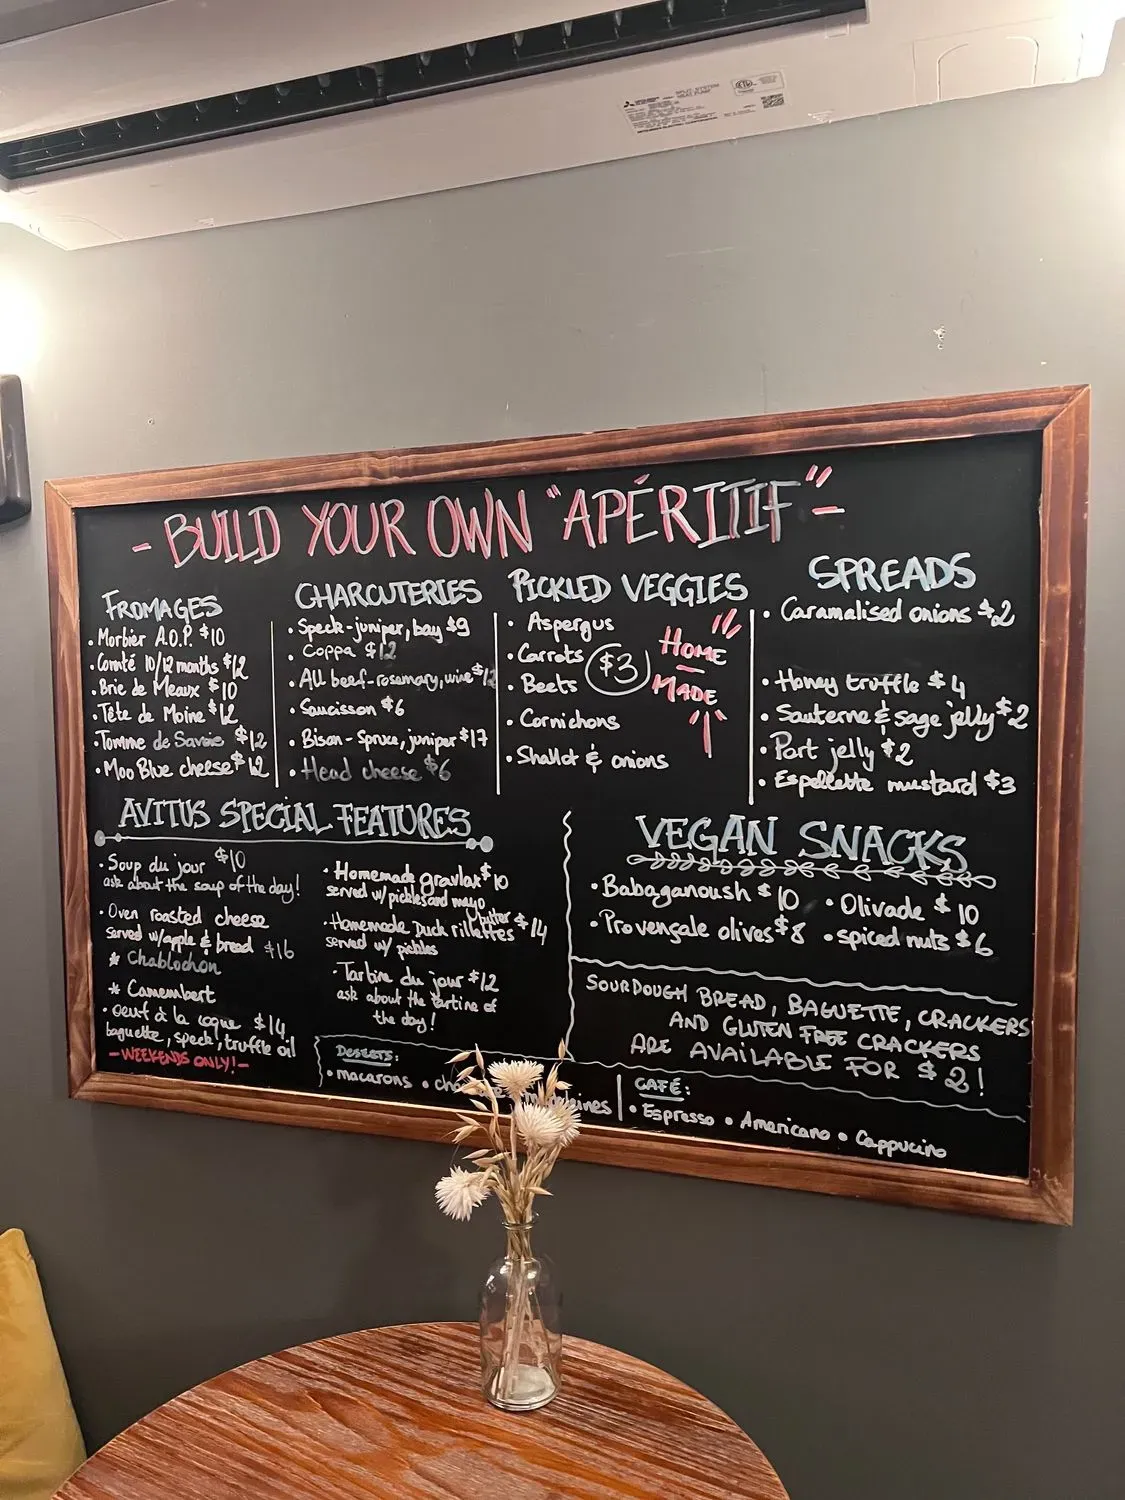 SPLIT-SYSTEM
HEAT PUMP
- BUILD YOUR OWN "APÉRITIF" -
FROMAGES
• Morbier A.O.P. $10
• Comté 10/12 months $12
• Brie de Meaux $10
• Tête de Moine $12
• Tomme de Savoie $12
• Moo Blue cheese $12
CHARCUTERIES
• Speck - juniper, bay $9
• Coppa $12
• All beef - rosemary, wine $12
• Saucisson $6
• Bison - Spruce, juniper $17
• Head cheese $6
PICKLED VEGGIES
• Aspergus
• Carrots
• Beets
• Cornichons
• Shallot & onions
$3
HOME
MADE
SPREADS
• Caramalised onions $2
• Honey truffle $4
• Sauterne & sage jelly $2
• Port jelly $2
• Espellette mustard $3
AVITUS SPECIAL FEATURES
• Soup du jour $10
ask about the soup of the day!
• Oven roasted cheese
served w/apple & bread $16
* Chablochon
* Camembert
• oeuf à la coque $14
baguette, speck, truffle oil
- WEEKENDS ONLY! -
• Homemade gravlax $10
served w/ pickles and mayo
• Homemade Duck rillettes $14
served w/ pickles
• Tartine du jour $12
ask about the tartine of
the day!
VEGAN SNACKS
• Babaganoush $10 • Olivade $10
• Provençale olives $8 • spiced nuts $6
SOURDOUGH BREAD, BAGUETTE, CRACKERS
AND GLUTEN FREE CRACKERS
ARE AVAILABLE FOR $2!
DESSERTS:
• macarons •
CAFÉ:
• Espresso • Americano • Cappucino